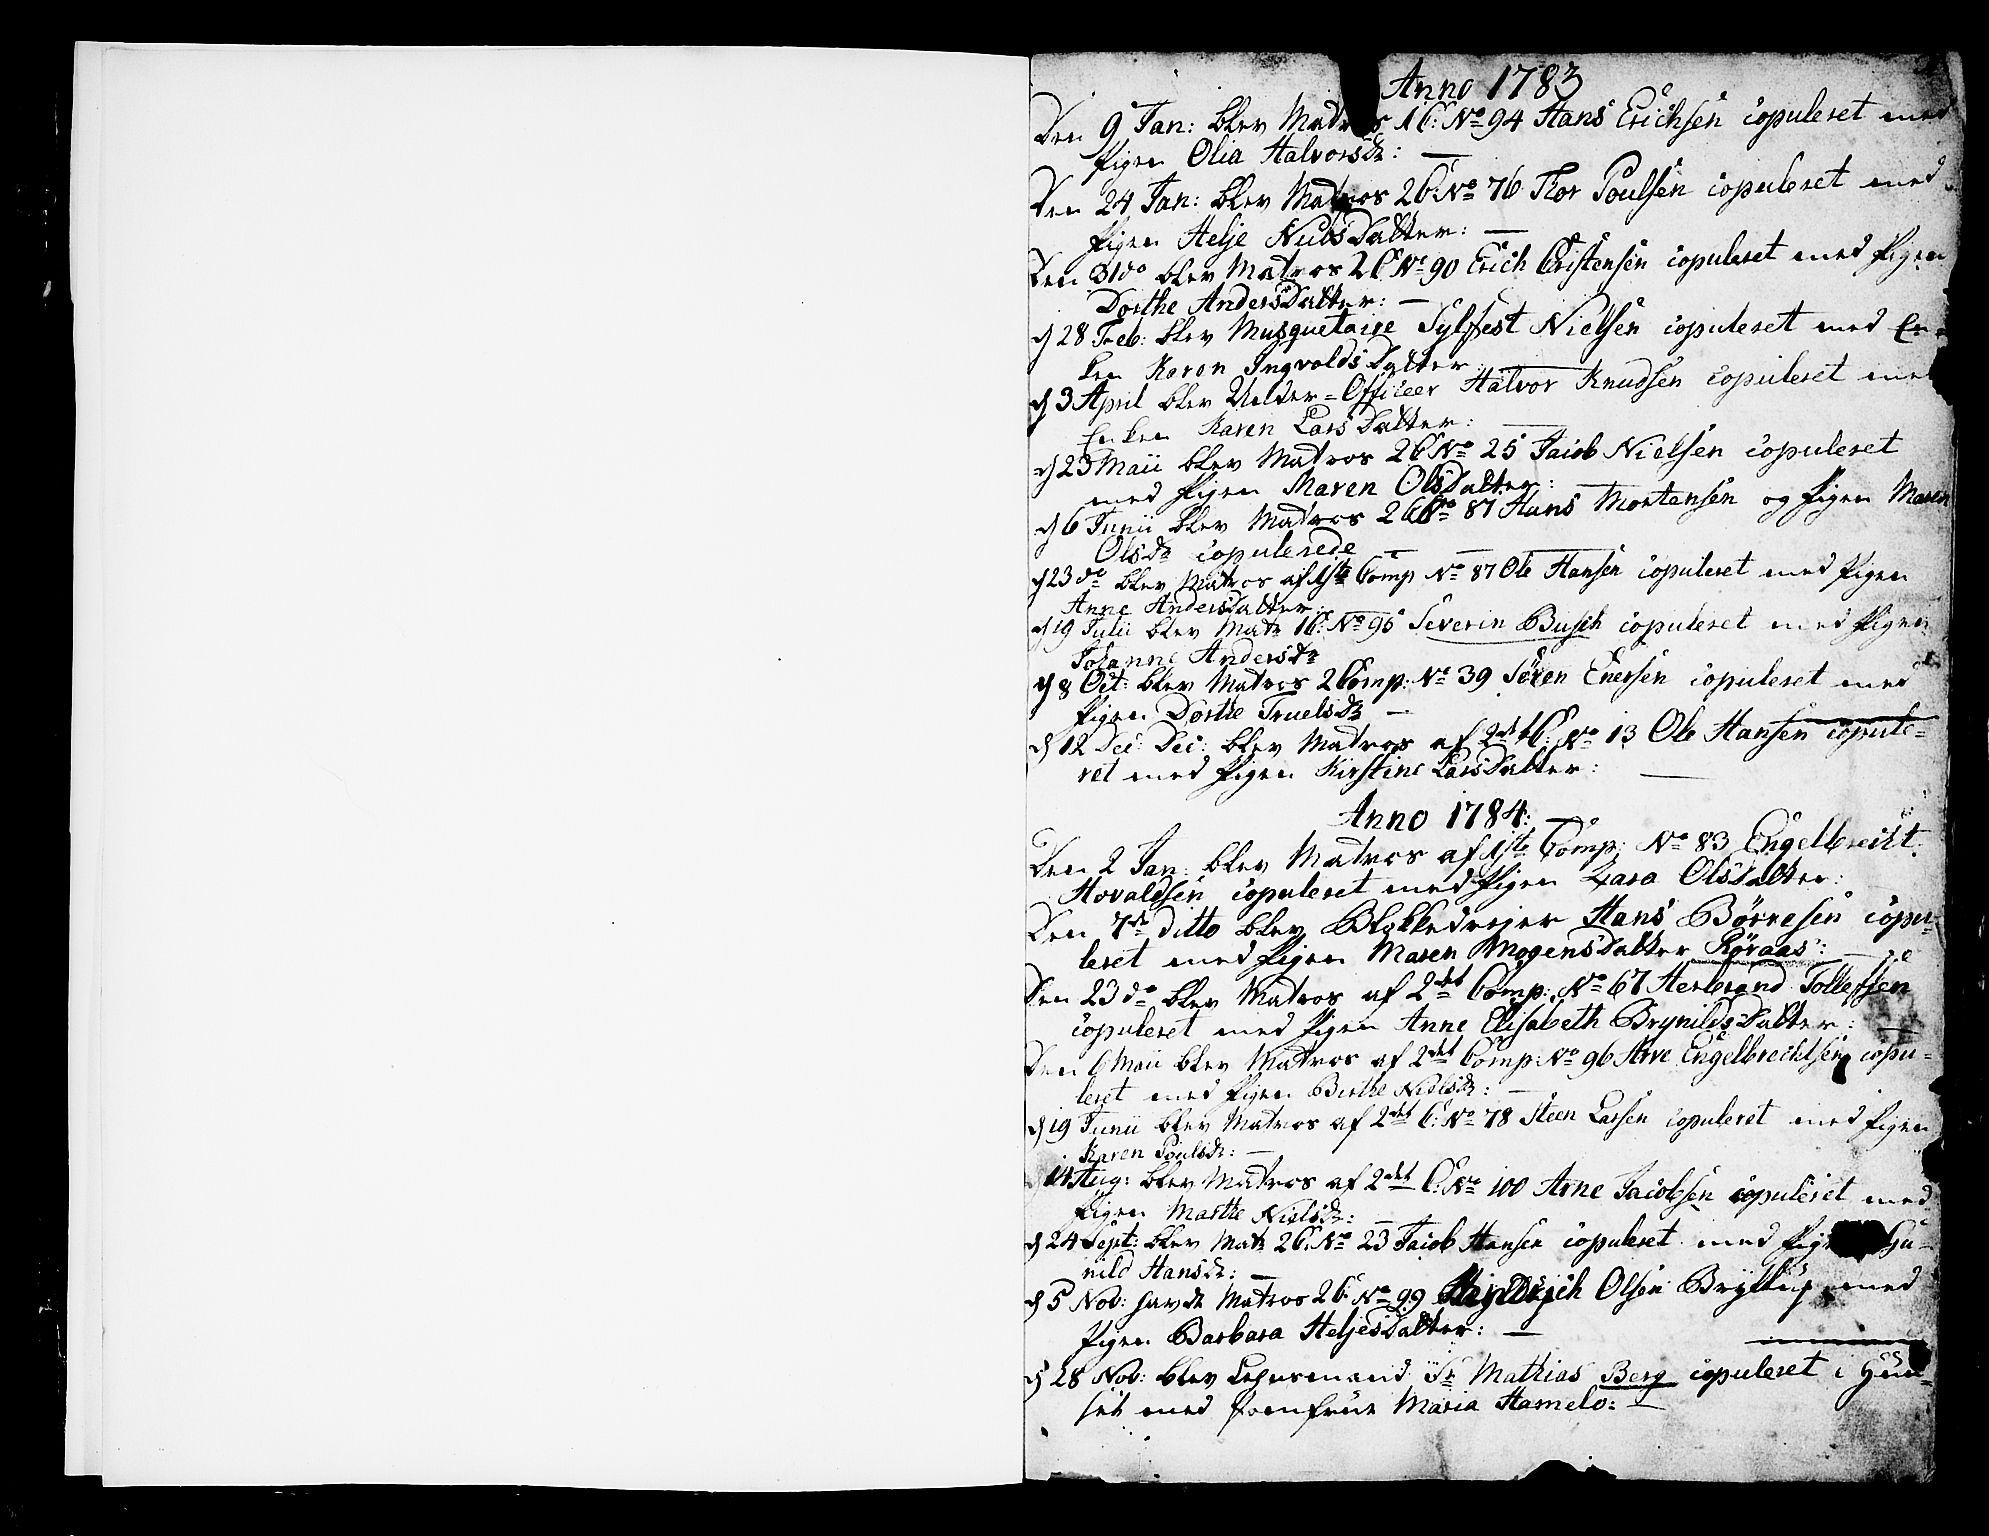 Anno 1783
Den 9 Jan: blev Matros 1 C: No 94 Hans Erichsen copuleret med
Pigen Olia Halvorsdr:
Den 24 Jan: blev Matros 2 C: No 76 Thor Poulsen copuleret med
Pigen Helje NielsDatter:
Den 31 do blev Matros 2 C No 90 Erich Christensen copuleret med Pigen
Dorthe AndersDatter:
d 28 Feb: blev Musquetaire Sylfest Nielsen copuleret med En-
ken Karen IngvoldsDatter
d 3 April blev Under-Officeer Halvor Knudsen copuleret med
Enken Karen LarsDatter:
d 23 Maii blev Matros 2 C No 25 Jacob Nielsen copuleret
med Pigen Maren OlsDatter:
d 6 Junii blev Matros 2 C No 87 Hans Mortensen og Pigen Maren
Olsdr copulerede
d 23 do blev Matros af 1ste Comp No 87 Ole Hansen copuleret med Pigen
Anne AndersDatter:
d 19 Julii blev Matr 1 C: No 95 Severin Busch copuleret med Pigen
Johanne Andersdr
d 8 Oct: blev Matros 2 Comp: No 39 Søren Enersen copuleret med
Pigen Dorthe Truelsdr
d 12 Dec: Dec: blev Matros af 2det C: No 13 Ole Hansen copule=
ret med Pigen Kirstine LarsDatter:
Anno 1784:
Den 2 Jan: blev Matros af 1ste Comp: No 83 Engelbrecht
Hovaldsen copuleret med Pigen Zara OlsDatter:
Den 7de ditto blev Blokkedrejer Hans Børresen copu-
leret med Pigen Maren MogensDatter Røraas:
Den 23 do blev Matros af 2det Comp: No 67 Herbrand Tollefsen
copuleret med Pigen Anne Elisabeth BrynildsDatter:
Den 6 Maii blev Matros af 2det Comp: No 96 Arve Engelbrechtsen copu=
leret med Pigen Birthe Nielsdr:
d 19 Junii blev Matros af 2det C: No 78 Steen Larsen copuleret med Pigen
Karen Poulsdr:
d 14 Aug: blev Matros af 2det C: No 100 Arne Jacobsen copuleret med
Pigen Marthe Nielsdr:
d 24 Sept: blev Matr 2 C: No 23 Jacob Hansen copuleret med Pigen Gu-
nild Hansdr:
d 5 Nob: havde Matros 2 C: No 99 Hindrich Olsen Bryllup med
Pigen Barbara HeljesDatter:
d 28 Nob: blev Lehnsmand Sr Mathias Berg copuleret i Huu-
set med Jomfrue Maria Hamelo: